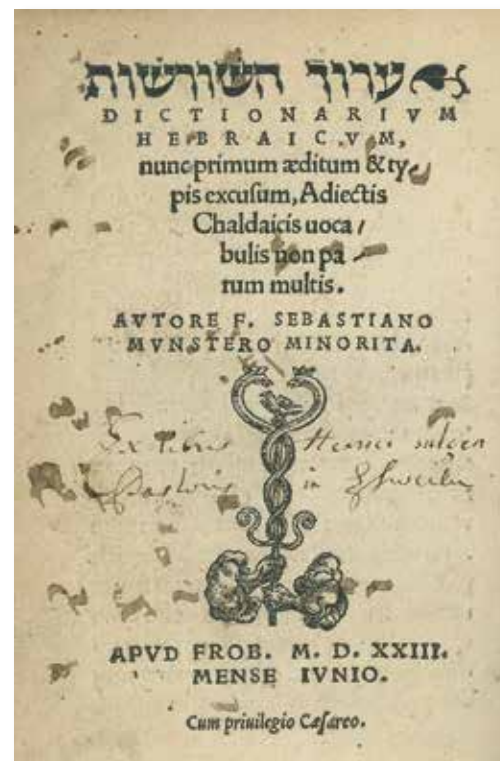 ערוך השורשות
DICTIONARIVM
HEBRAICVM,
nunc primum æditum & ty-
pis excuſum, Adiectis
Chaldaicis uoca /
bulis non pa /
rum multis.
AVTORE F. SEBASTIANO
MVNSTERO MINORITA.
Ex libris Henrici
Pastoris in
APVD FROB. M. D. XXIII.
MENSE IVNIO.
Cum priuilegio Cæſareo.